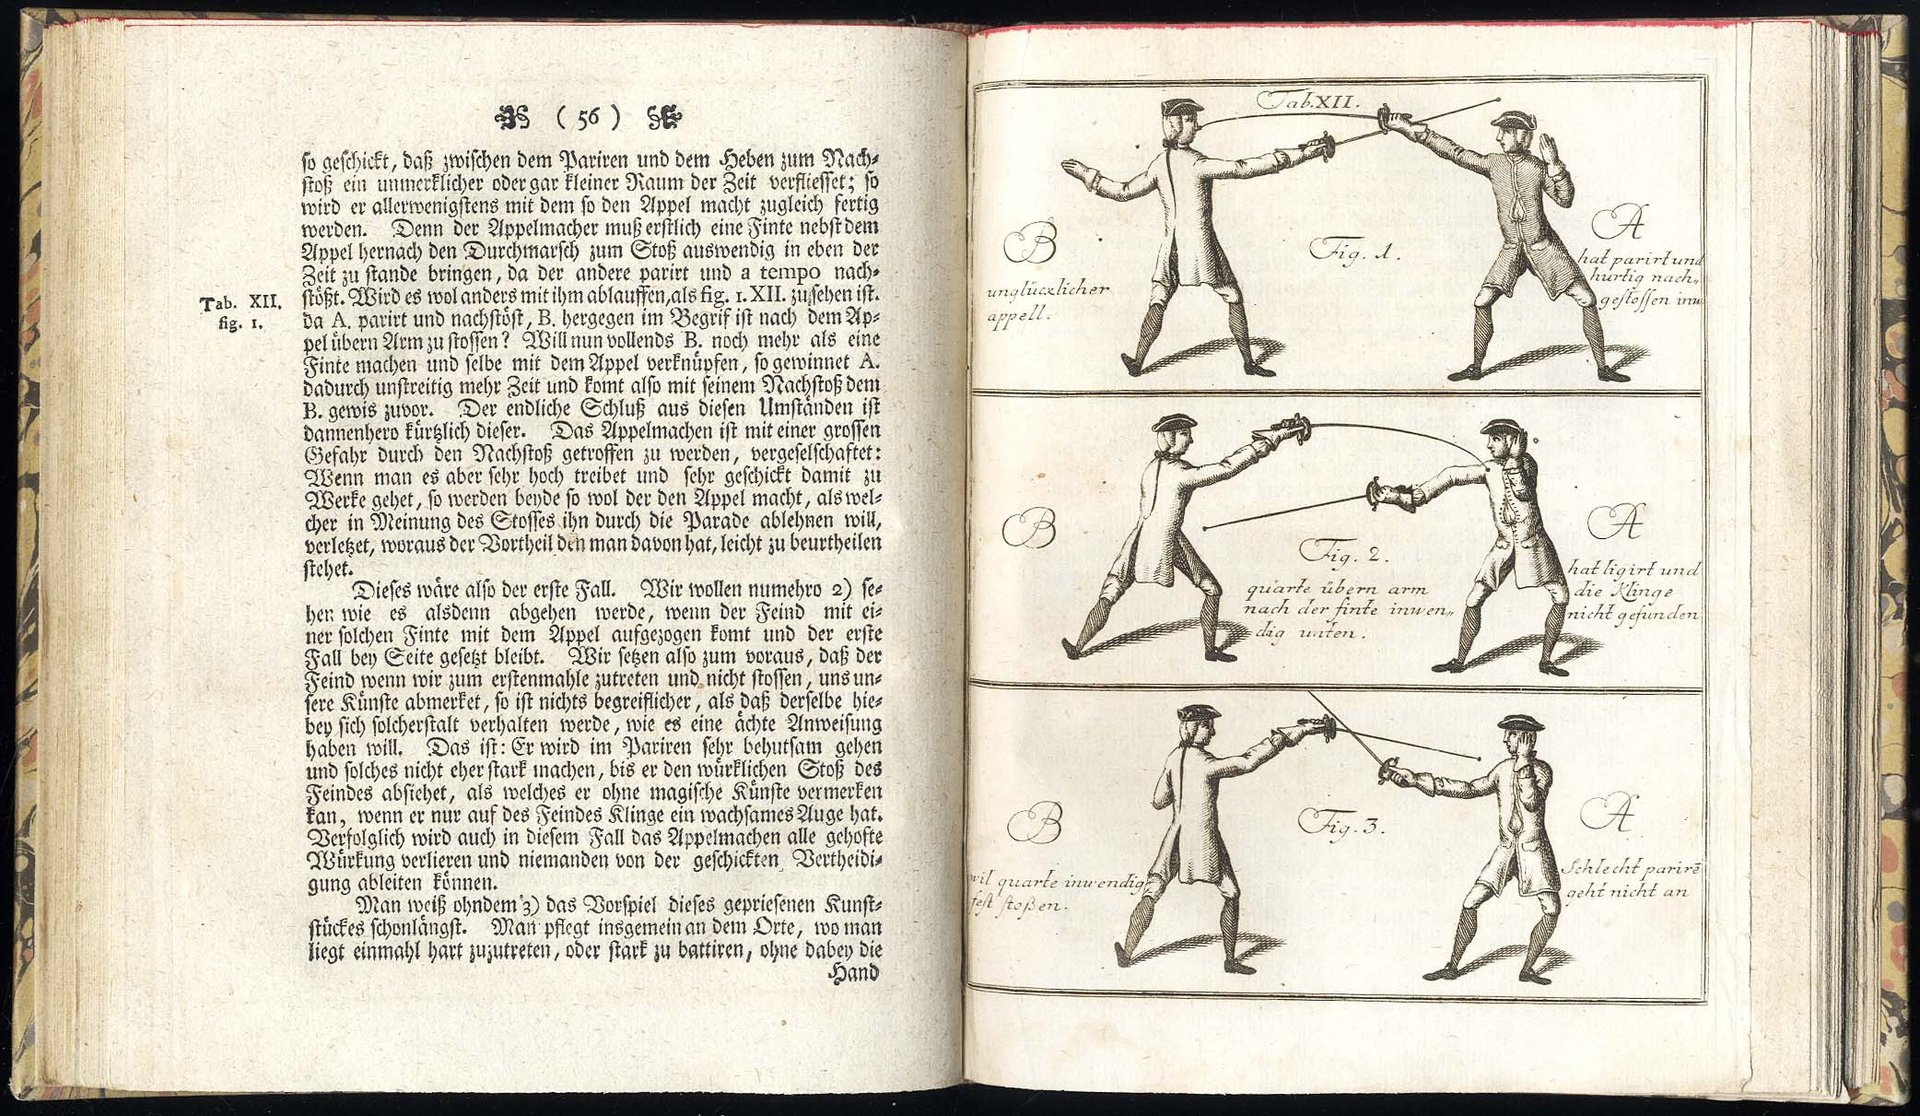 ( 56 )
so geschickt, daß zwischen dem Pariren und dem Heben zum Nach-
stoß ein unmerklicher oder gar kleiner Raum der Zeit verfliesset; so
wird er allerwenigstens mit dem so den Appel macht zugleich fertig
werden. Denn der Appelmacher muß erstlich eine Finte nebst dem
Appel hernach den Durchmarsch zum Stoß auswendig in eben der
Zeit zu stande bringen, da der andere parirt und a tempo nach-
stößt. Wird es wol anders mit ihm ablauffen, als fig. 1. XII. zu sehen ist.
Tab. XII.
fig. 1.
da A. parirt und nachstöst, B. hergegen im Begrif ist nach dem Ap-
pel übern Arm zu stossen? Will nun vollends B. noch mehr als eine
Finte machen und selbe mit dem Appel verknüpfen, so gewinnet A.
dadurch unstreitig mehr Zeit und komt also mit seinem Nachstoß dem
B. gewis zuvor. Der endliche Schluß aus diesen Umständen ist
dannenhero kürtzlich dieser. Das Appelmachen ist mit einer grossen
Gefahr durch den Nachstoß getroffen zu werden, vergeselschaftet:
Wenn man es aber sehr hoch treibet und sehr geschickt damit zu
Werke gehet, so werden beyde so wol der den Appel macht, als wel-
cher in Meinung des Stosses ihn durch die Parade ablehnen will,
verletzet, woraus der Vortheil den man davon hat, leicht zu beurtheilen
stehet.
Dieses wäre also der erste Fall. Wir wollen numehro 2) se-
hen wie es alsdenn abgehen werde, wenn der Feind mit ei-
ner solchen Finte mit dem Appel aufgezogen komt und der erste
Fall bey Seite gesetzt bleibt. Wir setzen also zum voraus, daß der
Feind wenn wir zum erstenmahle zutreten und nicht stossen, uns un-
sere Künste abmerket, so ist nichts begreiflicher, als daß derselbe hie-
bey sich solcherstalt verhalten werde, wie es eine ächte Anweisung
haben will. Das ist: Er wird im Pariren sehr behutsam gehen
und solches nicht eher stark machen, bis er den würklichen Stoß des
Feindes absiehet, als welches er ohne magische Künste vermerken
kan, wenn er nur auf des Feindes Klinge ein wachsames Auge hat.
Verfolglich wird auch in diesem Fall das Appelmachen alle gehofte
Würkung verlieren und niemanden von der geschickten Vertheidi-
gung ableiten können.
Man weiß ohndem 3) das Vorspiel dieses gepriesenen Kunst-
stückes schonlängst. Man pflegt insgemein an dem Orte, wo man
liegt einmahl hart zuzutreten, oder stark zu battiren, ohne dabey die
Hand
Tab. XII.
B
unglücklicher
appell.
Fig. 1.
A
hat parirt und
hurtig nach-
gestossen inw
B
Fig. 2.
quarte übern arm
nach der finte inwen-
dig unten.
A
hat ligirt und
die Klinge
nicht gefunden
B
wil quarte inwendig
fest stoßen.
Fig. 3.
A
Schlecht parirē
geht nicht an